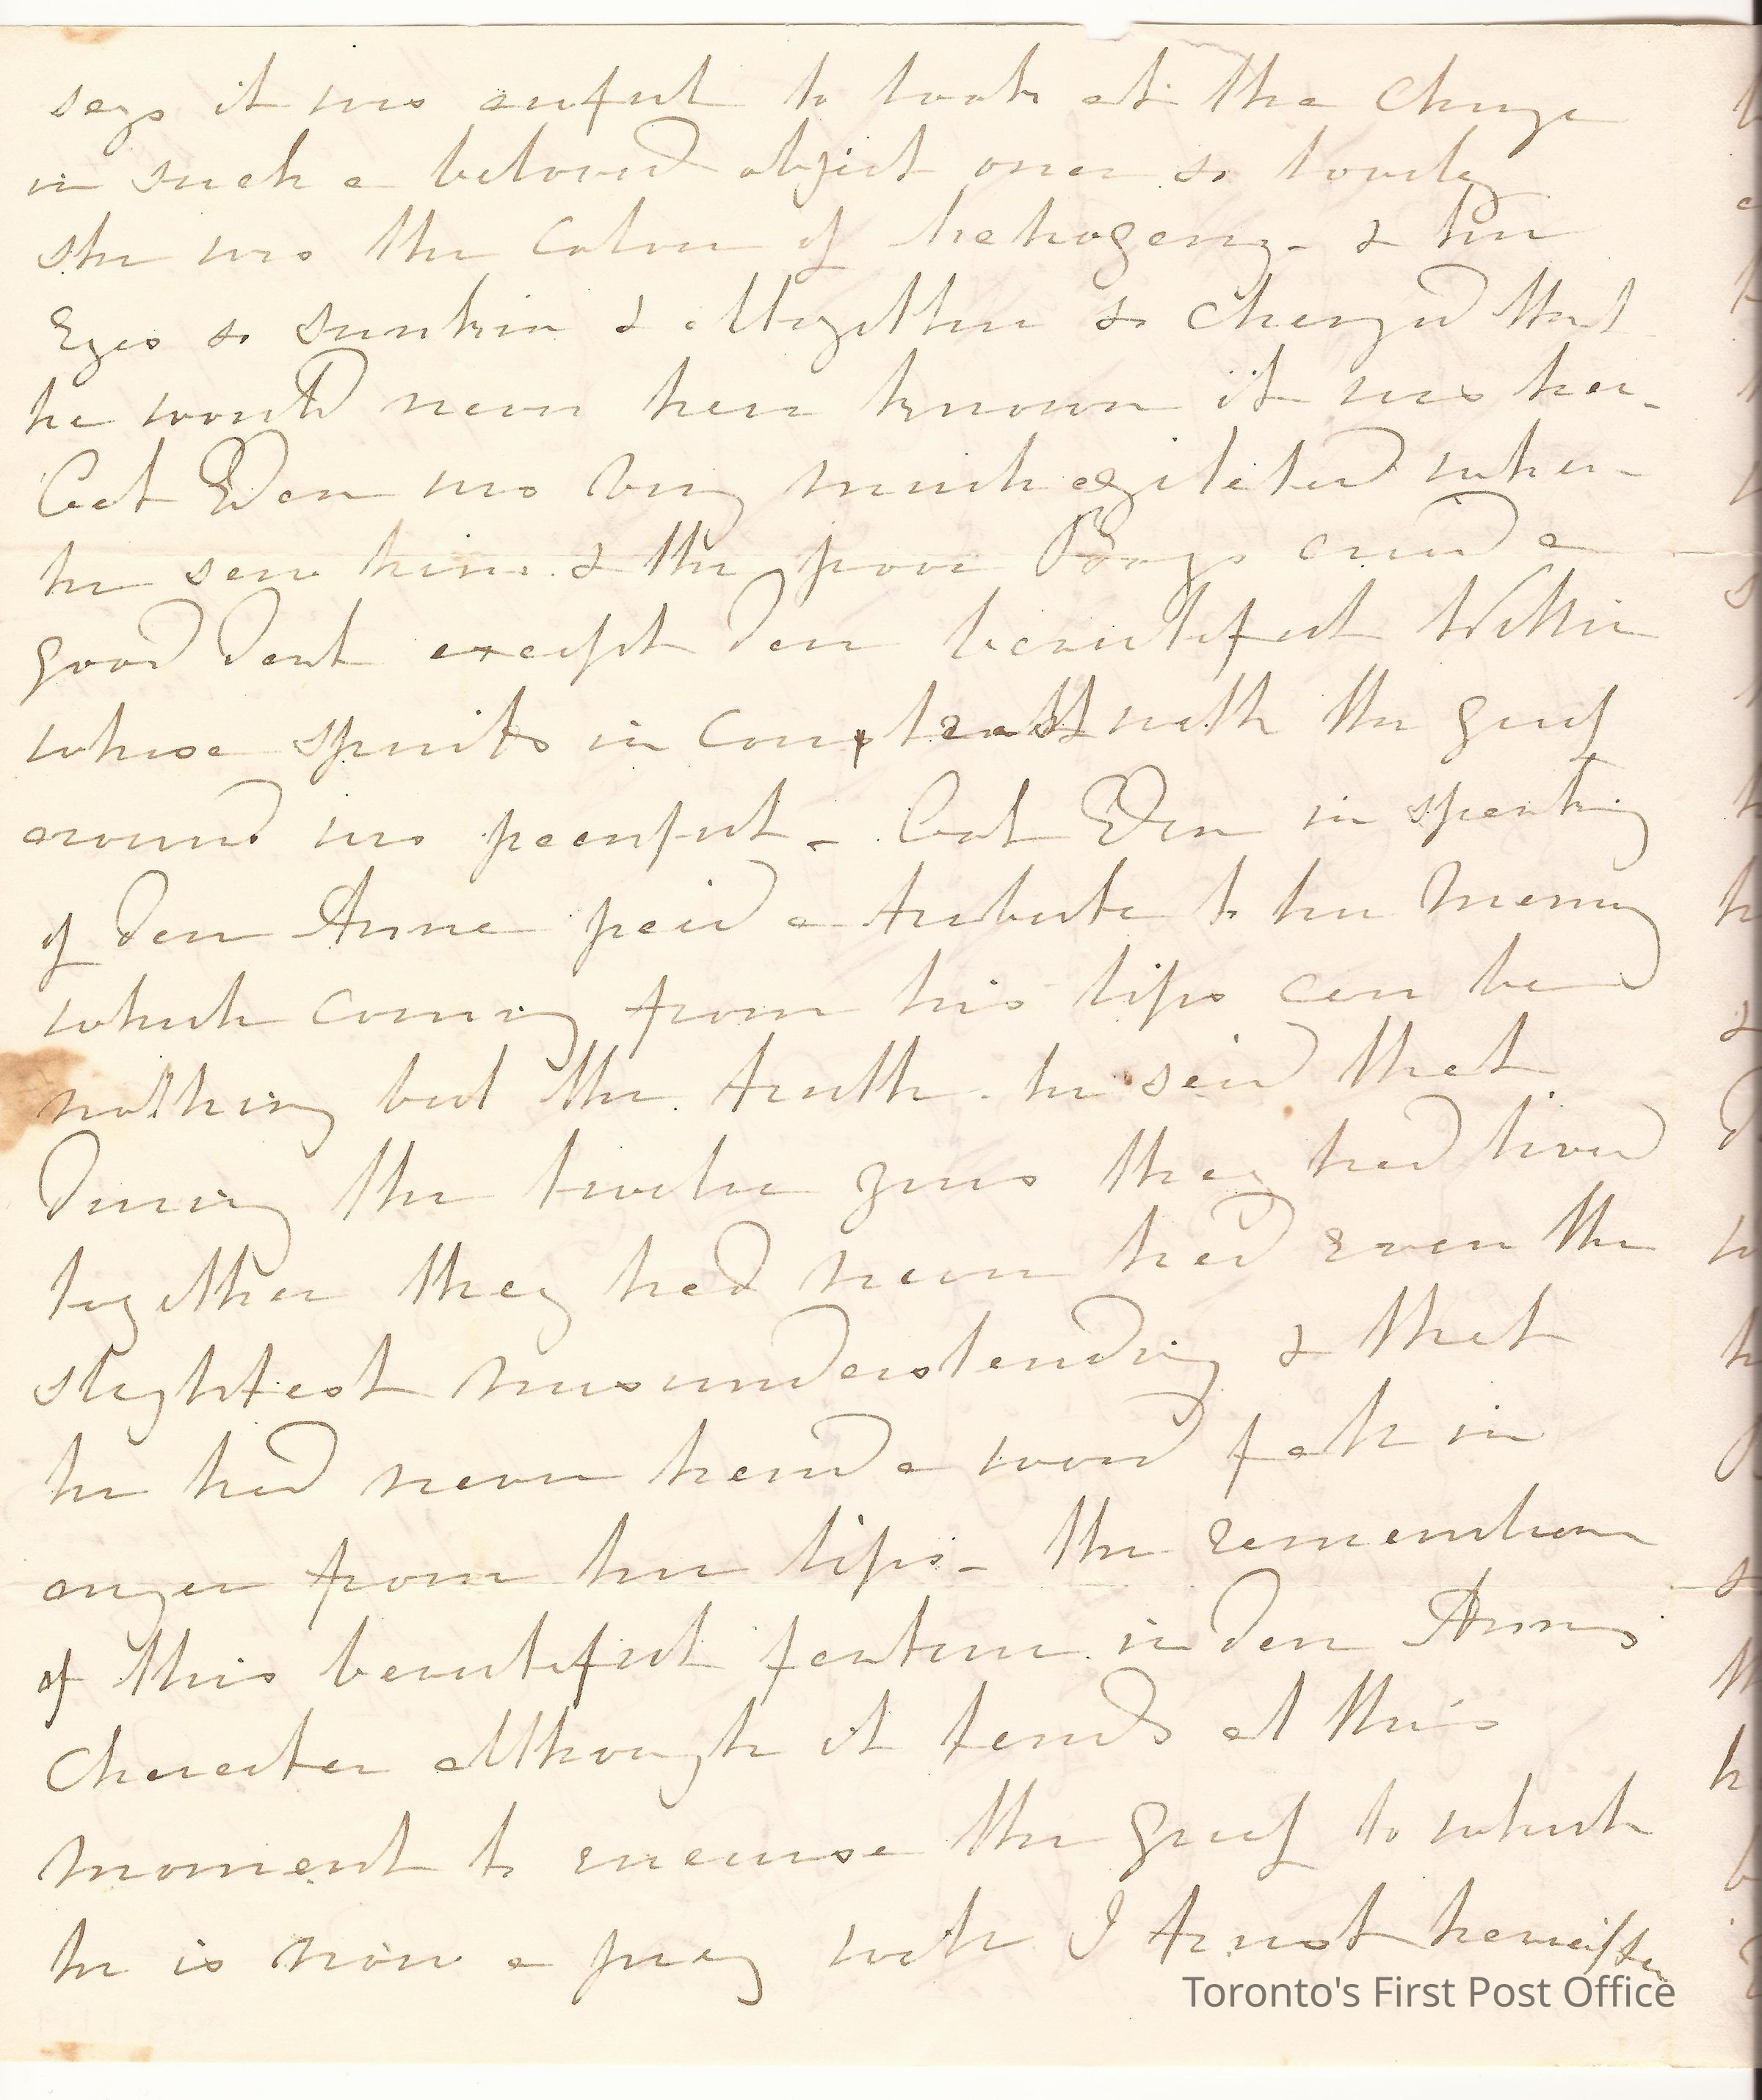 says it was awful to look at the change
in such a beloved object once so lovely
she was the colour of Mahogeny - & her
Eyes so sunken & alltogether so changed that
he would never have known it was her -
Cat was very much agitated when
he saw him & the poor Boys cried a
good deal except dear beautiful Willie
whose spirits in contrast with the grief
around was peenful - Cat in speaking
of dear Anne paid a tribute to her Memory
which coming from his lips can be
nothing but the truth. he said that
During the twelve years they had lived
together they had never had even the
slightest misunderstanding & that
he had never heard a word fall in
anger from her lips - the remembrance
of this beautiful feature in dear Annes
Character allthough it tends at this
moment to encrease the grief to which
he is now a prey will I trust hereafter
Toronto's First Post Office